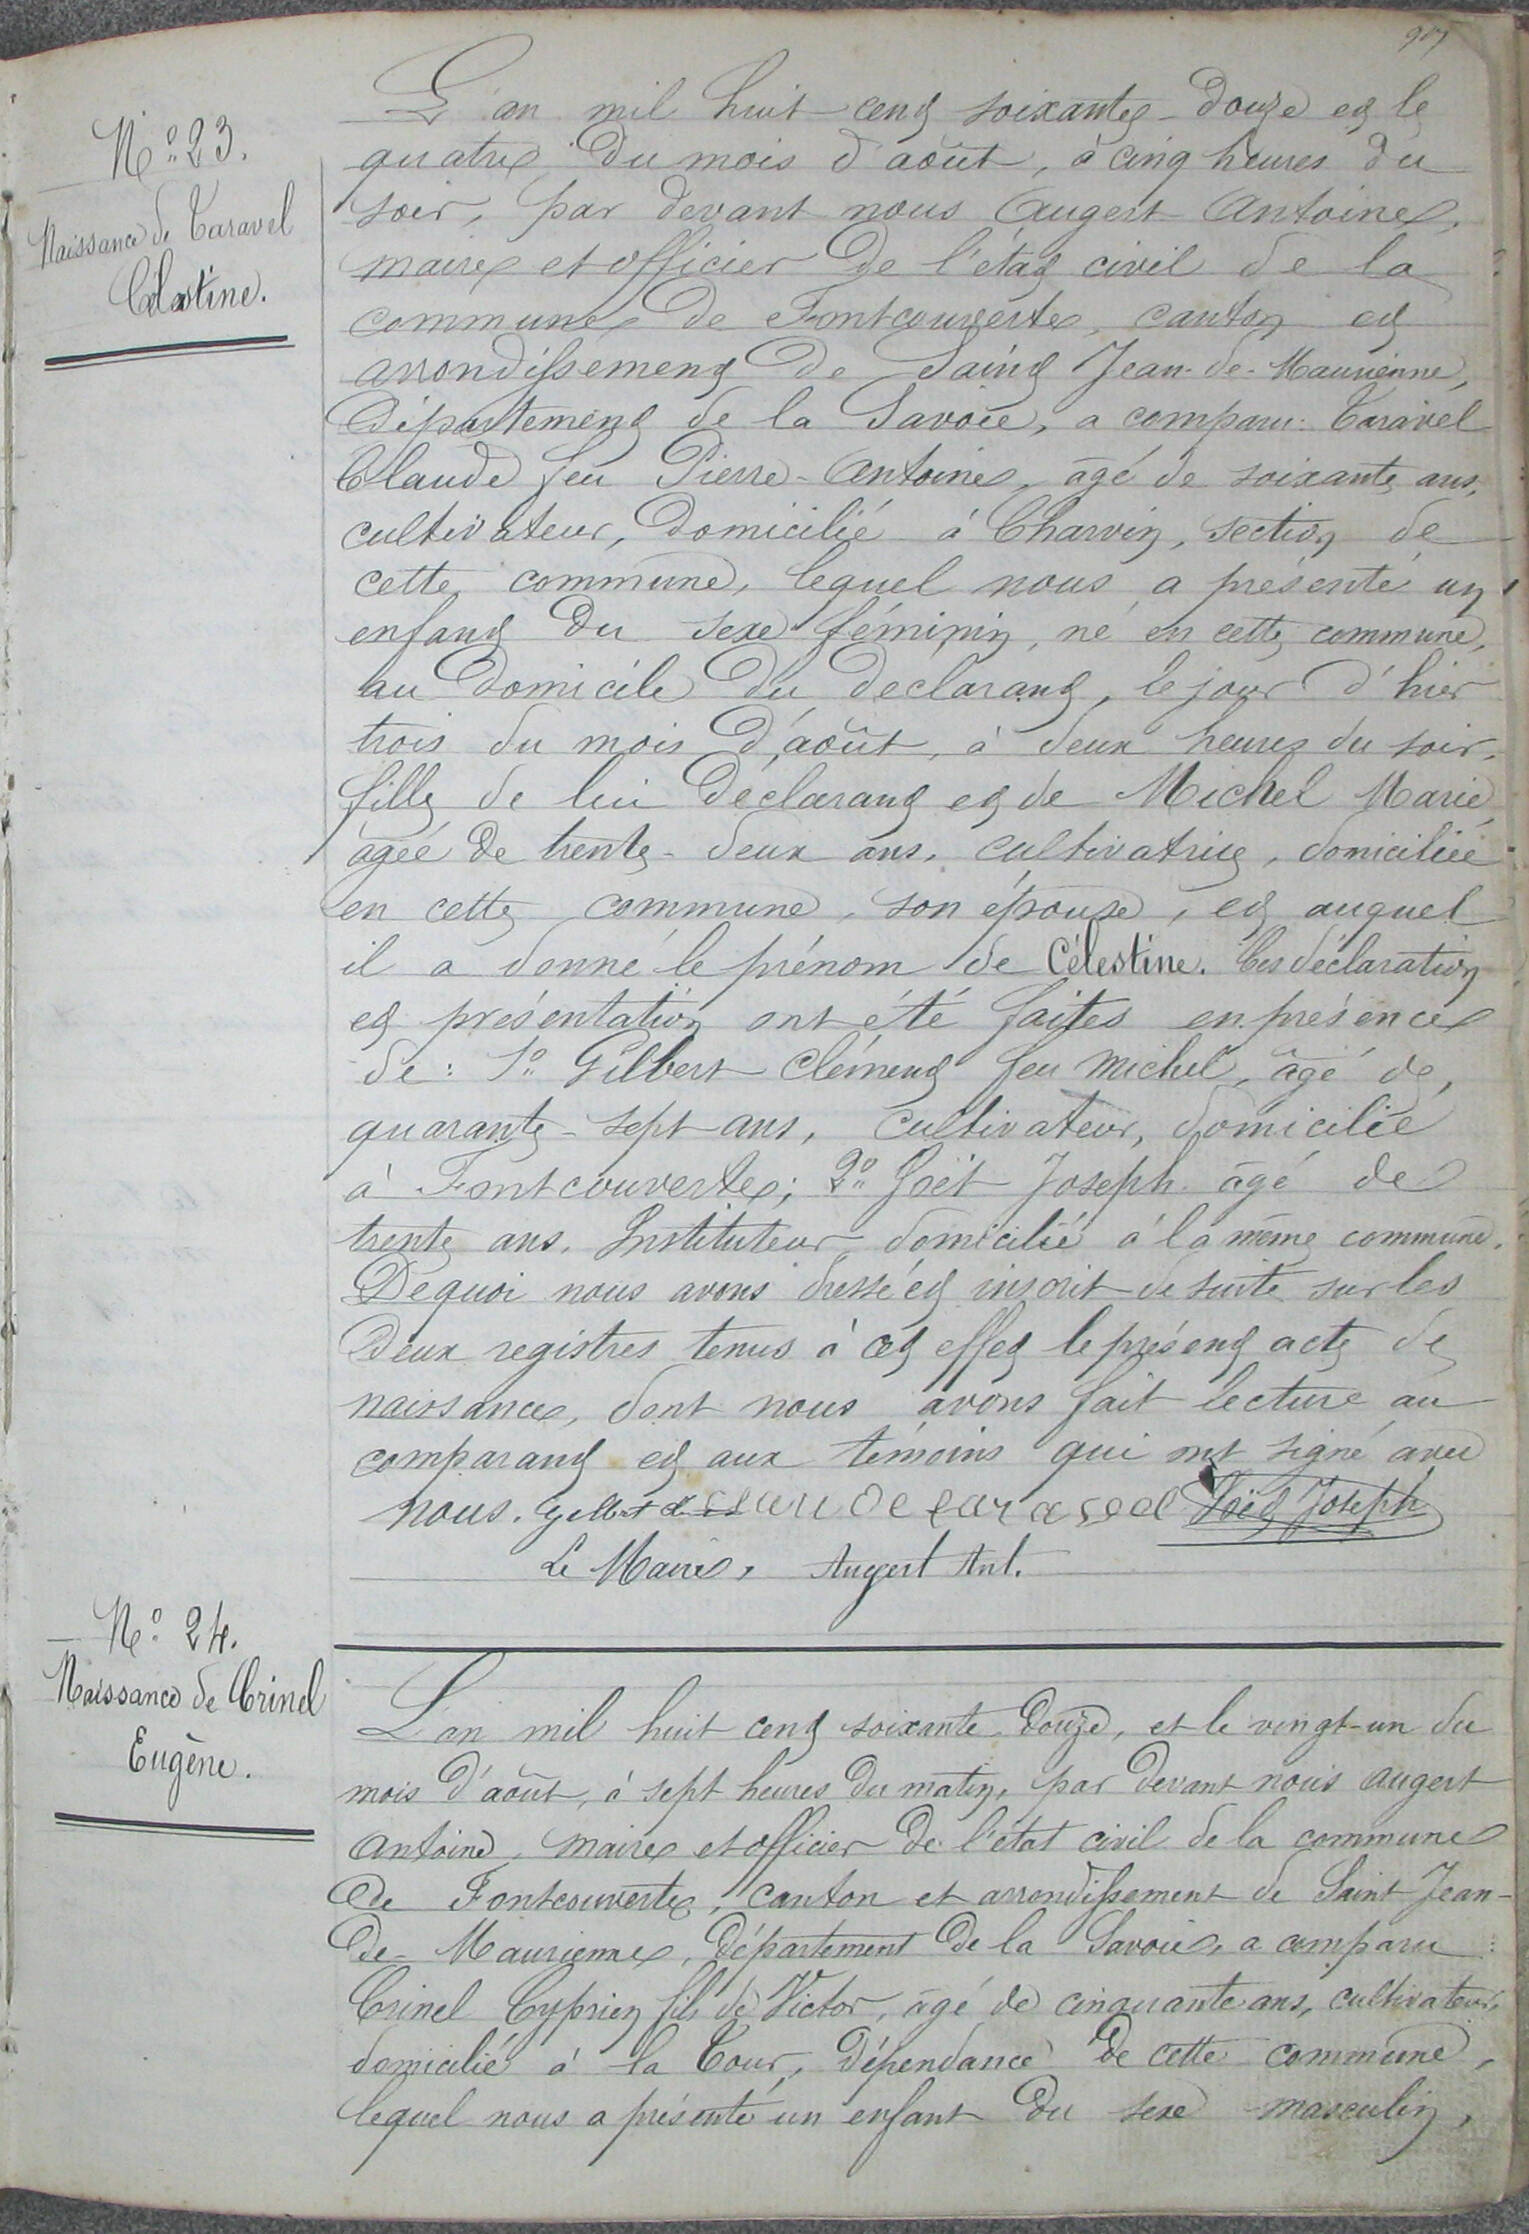 907
N.° 23.
Naissance de Taravel
Célestine.
L'an mil huit cent soixante-douze et le
quatre du mois d'août, à cinq heures du
soir, par devant nous Augert Antoine,
maire et officier de l'état civil de la
commune de Fontcouverte, canton et
arrondissement de Saint Jean-de-Maurienne,
département de la Savoie, a comparu: Taravel
Claude feu Pierre-Antoine, âgé de soixante ans,
cultivateur, domicilié à Charvin, section de
cette commune, lequel nous a présenté un
enfant du sexe féminin, né en cette commune,
au domicile du déclarant, le jour d'hier
trois du mois d'août, à deux heures du soir,
fille de lui déclarant et de Michel Marie,
âgée de trente-deux ans, cultivatrice, domiciliée
en cette commune, son épouse, et auquel
il a donné le prénom de Célestine. Ces déclaration
et présentation ont été faites en présence
de: 1° Gilbert Clément feu Michel, âgé de
quarante-sept ans, cultivateur, domicilié
à Fontcouverte; 2° Joët Joseph âgé de
trente ans, Instituteur, domicilié à la même commune.
De quoi nous avons dressé et inscrit de suite sur les
deux registres tenus à cet effet le présent acte de
naissance, dont nous avons fait lecture au
comparant et aux témoins qui ont signé avec
nous. Gilbert Claude taravel Joët Joseph
Le Maire, Augert Ant.
N.° 24.
Naissance de Crinel
Eugène.
L'an mil huit cent soixante-douze, et le vingt-un du
mois d'août, à sept heures du matin, par devant nous Augert
Antoine, maire et officier de l'état civil de la commune
de Fontcouverte, canton et arrondissement de Saint-Jean-
de-Maurienne, département de la Savoie, a comparu:
Crinel Cyprien fils de Victor, âgé de cinquante ans, cultivateur,
domicilié à la Tour, dépendance de cette commune,
lequel nous a présenté un enfant du sexe masculin,